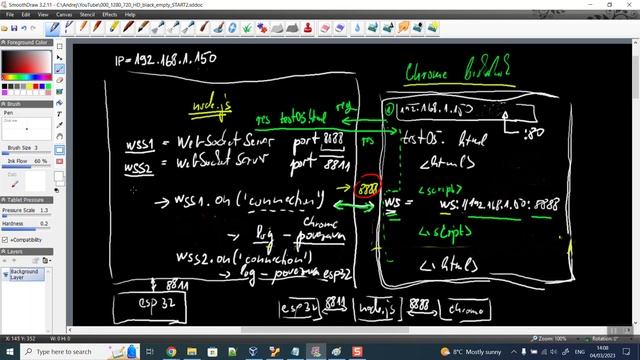 SmoothDraw 3.2.11 - C:\Andrej\YouTube\000_1280_720_HD_black_empty_START2.sddoc
Foreground Color
Brush
Pen
Brush Size 3
Ink Flow 60 %
Pressure Scale 1.3
Hardness 0.2
+Compatibility
Layers
Background Layer
IP=192.168.1.150
node.js
req
res testOS.html
res
WSS1 = WebSocket Server port 8188
WSS2 = WebSocket Server port 8811
→ WSS1.on('connection')
chrome
→ log - povezan
WSS2.on('connection')
→ log - povezan esp32
8811
esp 32
Chrome
192.168.1.150
:80
testOS. html
<html>
<script>
8888
WS = ws://192.168.1.50:8888
<html>
esp32 8811 node.js 8888 chrome
X: 145 Y: 352
W: 0 H: 0
100%
Rotation: 0°
8°C Mostly sunny
14:08
04/03/2023